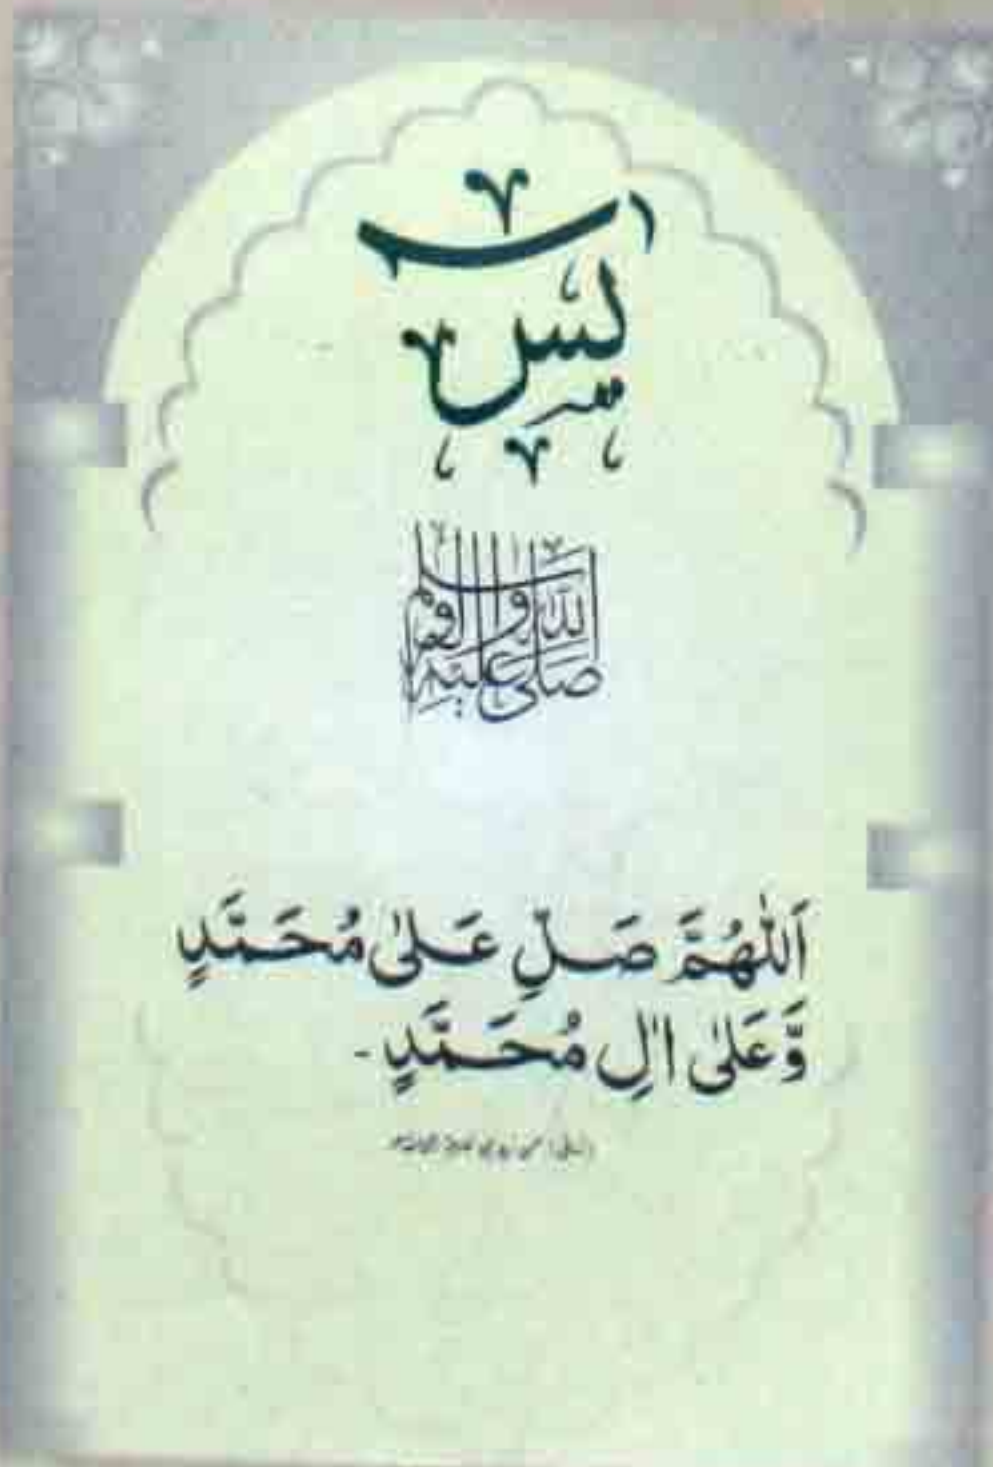 يٰسٓ
صلى الله عليه واله وسلم
اَللّٰهُمَّ صَلِّ عَلٰى مُحَمَّدٍ
وَّعَلٰى اٰلِ مُحَمَّدٍ۔